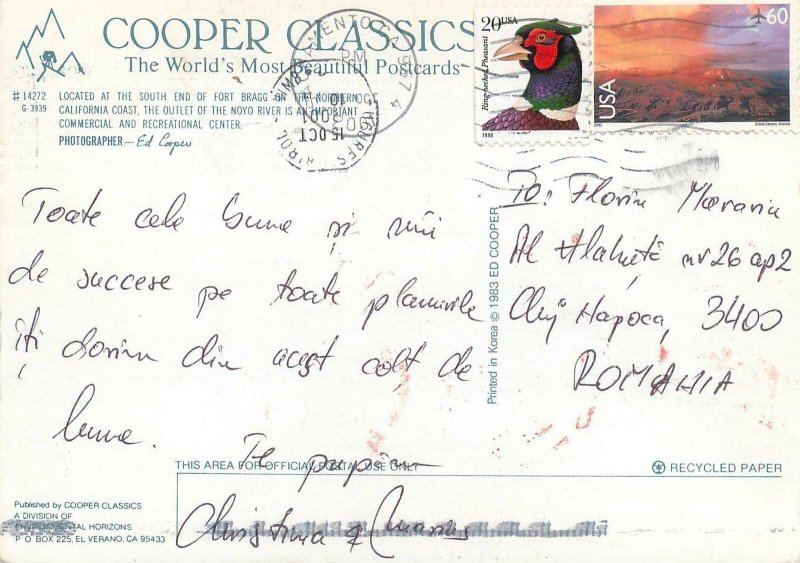 COOPER CLASSICS
The World's Most Beautiful Postcards
#14272
G-3939
LOCATED AT THE SOUTH END OF FORT BRAGG ON THE NORTHERN
CALIFORNIA COAST, THE OUTLET OF THE NOYO RIVER IS AN IMPORTANT
COMMERCIAL AND RECREATIONAL CENTER.
PHOTOGRAPHER — Ed Cooper
SACRAMENTO CA 957 4
PM
15 OCT
2001
20 USA
Ring-necked Pheasant
1998
60
USA
Grand Canyon, Arizona
Toate cele bune și mii
de succese pe toate planurile
îți dorim din acest colț de
lume.
Te pupă
Christina &
To: Florin Moraru
Al Vlahuță nr 26 ap 2
Cluj Napoca, 3400
ROMANIA
Printed in Korea © 1983 ED COOPER
THIS AREA FOR OFFICIAL POSTAL USE ONLY
RECYCLED PAPER
Published by COOPER CLASSICS
A DIVISION OF
ENVIRONMENTAL HORIZONS
P O BOX 225, EL VERANO, CA 95433